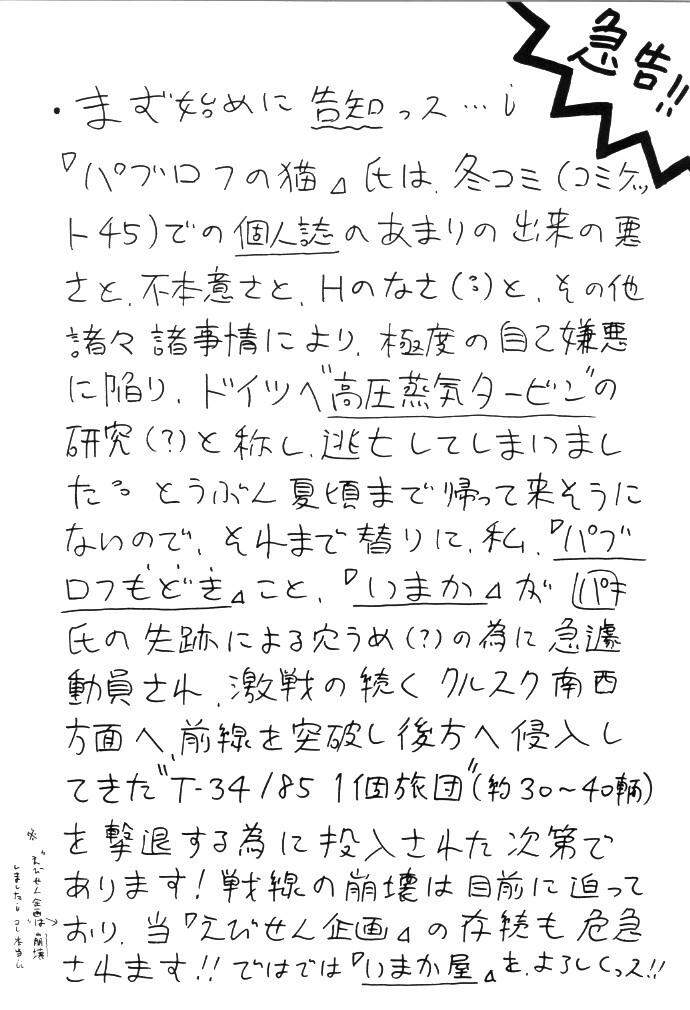 急告!!
・まず始めに告知っス…!
『パブロフの猫』氏は、冬コミ(コミケッ
ト45)での個人誌のあまりの出来の悪
さと、不本意さと、Hのなさ(?)と、その他
諸々諸事情により、極度の自己嫌悪
に陥り、ドイツへ"高圧蒸気タービン"の
研究(?)と称し、逃亡してしまいまし
た。とうぶん夏頃まで帰って来そうに
ないので、それまで替りに、私、『パブ
ロフもどき』こと、『いまか』が パキ
氏の失跡による穴うめ(?)の為に急遽
動員され、激戦の続くクルスク南西
方面へ、前線を突破し後方へ侵入し
てきた"T-34/85 1個旅団"(約30~40輌)
を撃退する為に投入された次第で
あります!戦線の崩壊は目前に迫って
おり、当『えびせん企画』の存続も危急
されます!!ではでは『いまか屋』を、よろしくっス!!
※"えびせん企画は崩壊
しました。